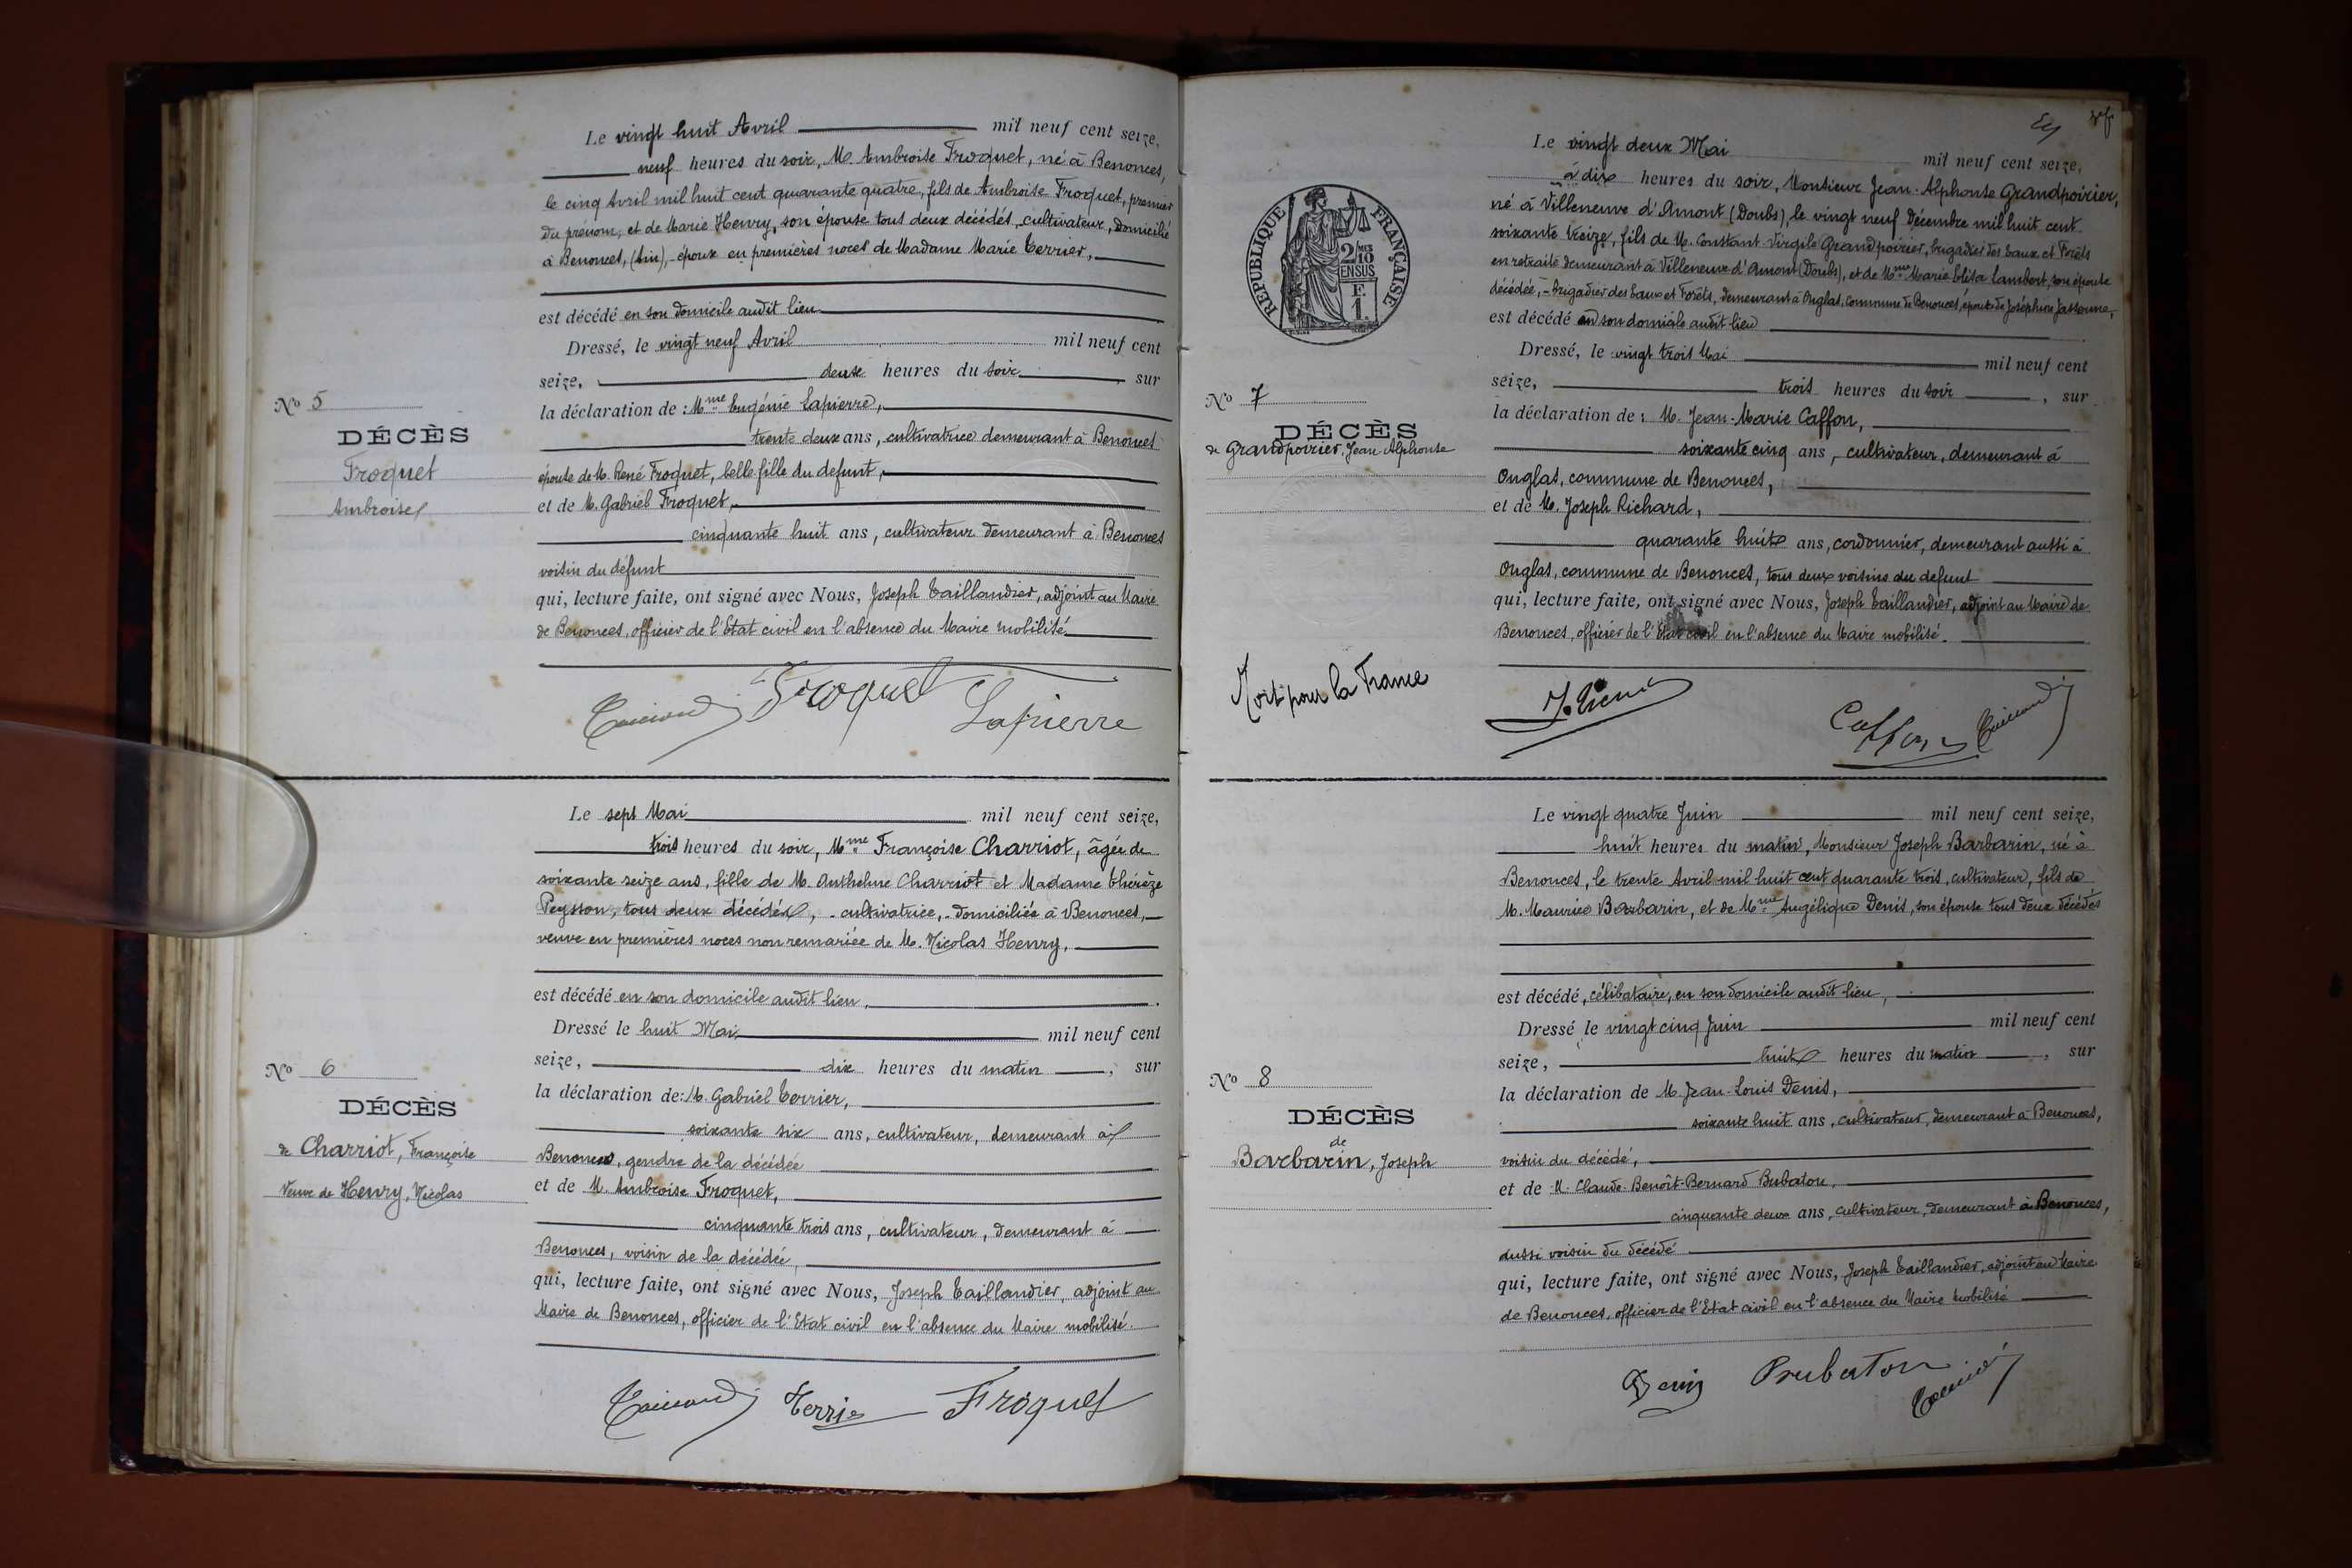 Le vingt huit Avril mil neuf cent seize,
neuf heures du soir, M. Ambroise Froquet, né à Benonces,
le cinq Avril mil huit cent quarante quatre, fils de Ambroise Froquet, premier
du prénom, et de Marie Henry, son épouse tous deux décédés, cultivateur, domicilié
à Benonces, (Ain), - époux en premières noces de Madame Marie Terrier,
est décédé en son domicile audit lieu
Dressé, le vingt neuf Avril mil neuf cent
seize, deux heures du soir sur
No 5
la déclaration de : Mme Eugénie Lapierre,
DÉCÈS
trente deux ans, cultivatrice demeurant à Benonces
Froquet
épouse de M. René Froquet, belle fille du defunt,
Ambroise
et de M. Gabriel Froquet,
cinquante huit ans, cultivateur demeurant à Benonces
voisin du défunt
qui, lecture faite, ont signé avec Nous, Joseph Taillandier, adjoint au Maire
de Benonces, officier de l'Etat civil en l'absence du Maire mobilisé
Froquet Lapierre
Le sept Mai mil neuf cent seize,
trois heures du soir, Mme Françoise Charriot, âgée de
soixante seize ans, fille de M. Anthelme Charriot et Madame Thérèze
Peysson, tous deux décédés, - cultivatrice, - domiciliée à Benonces,
veuve en premières noces non remariée de M. Nicolas Henry,
est décédé en son domicile audit lieu,
Dressé le huit Mai mil neuf cent
seize, dix heures du matin, sur
No 6
la déclaration de: M. Gabriel Terrier,
DÉCÈS
soixante six ans, cultivateur, demeurant à
de Charriot, Françoise
Benonces, gendre de la décédée
Veuve de Henry, Nicolas
et de M. Ambroise Froquet,
cinquante trois ans, cultivateur, demeurant à
Benonces, voisin de la décédée,
qui, lecture faite, ont signé avec Nous, Joseph Taillandier, adjoint au
Maire de Benonces, officier de l'Etat civil en l'absence du Maire mobilisé.
Terrier Froquet
RÉPUBLIQUE FRANÇAISE
2/10 EN SUS
F. 1.
Le vingt deux Mai mil neuf cent seize,
à dix heures du soir, Monsieur Jean-Alphonse Grandpoirier,
né à Villeneuve d'Amont (Doubs), le vingt neuf Décembre mil huit cent
soixante treize, fils de M. Constant Virgile Grandpoirier, brigadier des Eaux et Forêts
en retraite demeurant à Villeneuve d'Amont (Doubs), et de Mme Marie Elisa Lambert, son épouse
décédée, - Brigadier des Eaux et Forêts, demeurant à Onglas, commune de Benonces, époux de Joséphine Jassoune,
est décédé en son domicile audit lieu
Dressé, le vingt trois Mai mil neuf cent
seize, trois heures du soir, sur
No 7
la déclaration de : M. Jean-Marie Caffon,
DÉCÈS
de Grandpoirier, Jean Alphonse
soixante cinq ans, cultivateur, demeurant à
Onglas, commune de Benonces,
et de M. Joseph Richard,
quarante huit ans, cordonnier, demeurant aussi à
Onglas, commune de Benonces, tous deux voisins du defunt
qui, lecture faite, ont signé avec Nous, Joseph Taillandier, adjoint au Maire de
Benonces, officier de l'Etat civil en l'absence du Maire mobilisé.
Mort pour la France
Caffon
Le vingt quatre Juin mil neuf cent seize,
huit heures du matin, Monsieur Joseph Barbarin, né à
Benonces, le trente Avril mil huit cent quarante trois, cultivateur, fils de
M. Maurice Barbarin, et de Mme Angélique Denis, son épouse tous deux décédés
est décédé, célibataire, en son domicile audit lieu,
Dressé le vingt cinq Juin mil neuf cent
seize, huit heures du matin, sur
No 8
la déclaration de M. Jean-Louis Denis,
DÉCÈS
soixante huit ans, cultivateur, demeurant à Benonces,
de
Barbarin, Joseph
voisin du décédé,
et de M. Claude-Benoît-Bernard Bubaton,
cinquante deux ans, cultivateur, demeurant à Benonces,
aussi voisin du décédé
qui, lecture faite, ont signé avec Nous, Joseph Taillandier, adjoint au Maire
de Benonces, officier de l'Etat civil en l'absence du Maire mobilisé
Denis Bubaton